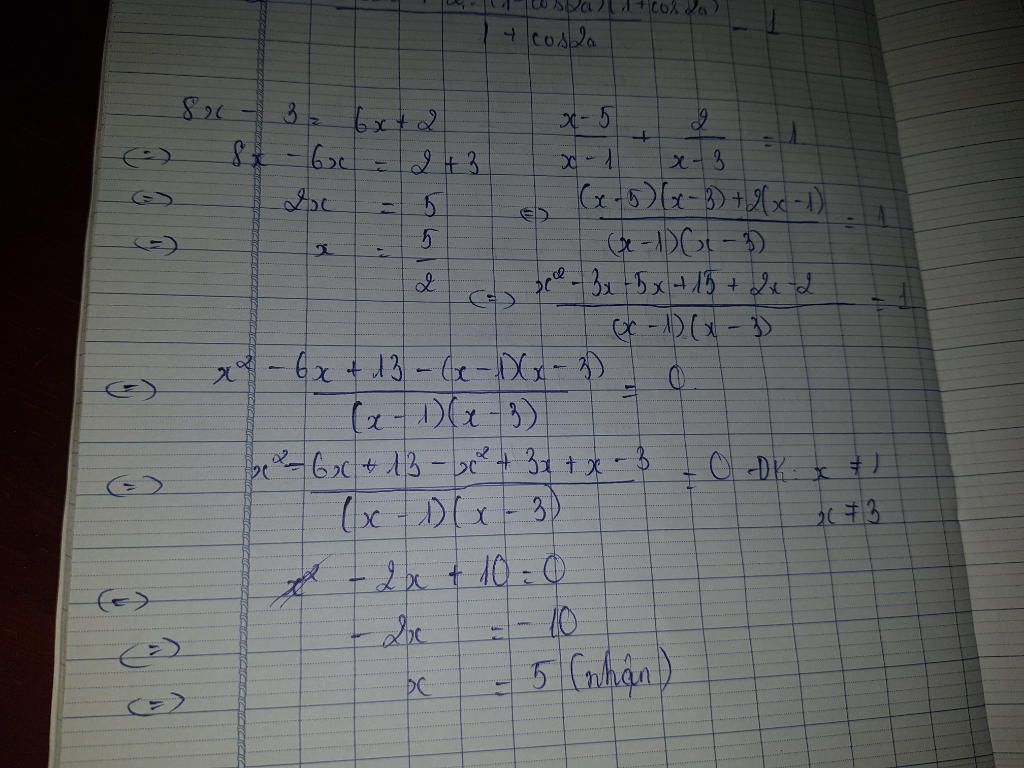 (1-cos2a)(1+cos2a)
1 + cos2a
- 1
8x - 3 = 6x + 2
(=) 8x - 6x = 2 + 3
(=) 2x = 5
(=) x = 5/2
(x-5)/(x-1) + 2/(x-3) = 1
(=) ((x-5)(x-3)+2(x-1))/((x-1)(x-3)) = 1
(=) (x² - 3x - 5x + 15 + 2x - 2)/((x-1)(x-3)) = 1
(=) (x² - 6x + 13 - (x-1)(x-3))/((x-1)(x-3)) = 0
(=) (x² - 6x + 13 - x² + 3x + x - 3)/((x-1)(x-3)) = 0 ĐK: x ≠ 1
x ≠ 3
(=) - 2x + 10 = 0
(=) - 2x = - 10
(=) x = 5 (nhận)